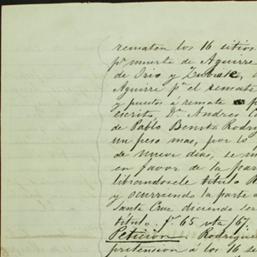 rematan los 16 sitios
pr. muerte de Aguirre
de Irio y Zubiate,
Aguirre pa. el remate
y puestos á remate
escrito, Dn. Andres
de Pablo Benito Rodri
un peso mas, por lo
de nueve dias, le
en favor de la par
librandosele titulo
y ocurriendo la parte
Santa Cruz diciendo ser
titulo. fs. 65 vta 67,
Peticion. Rodrigue
pretencion á los 16 s